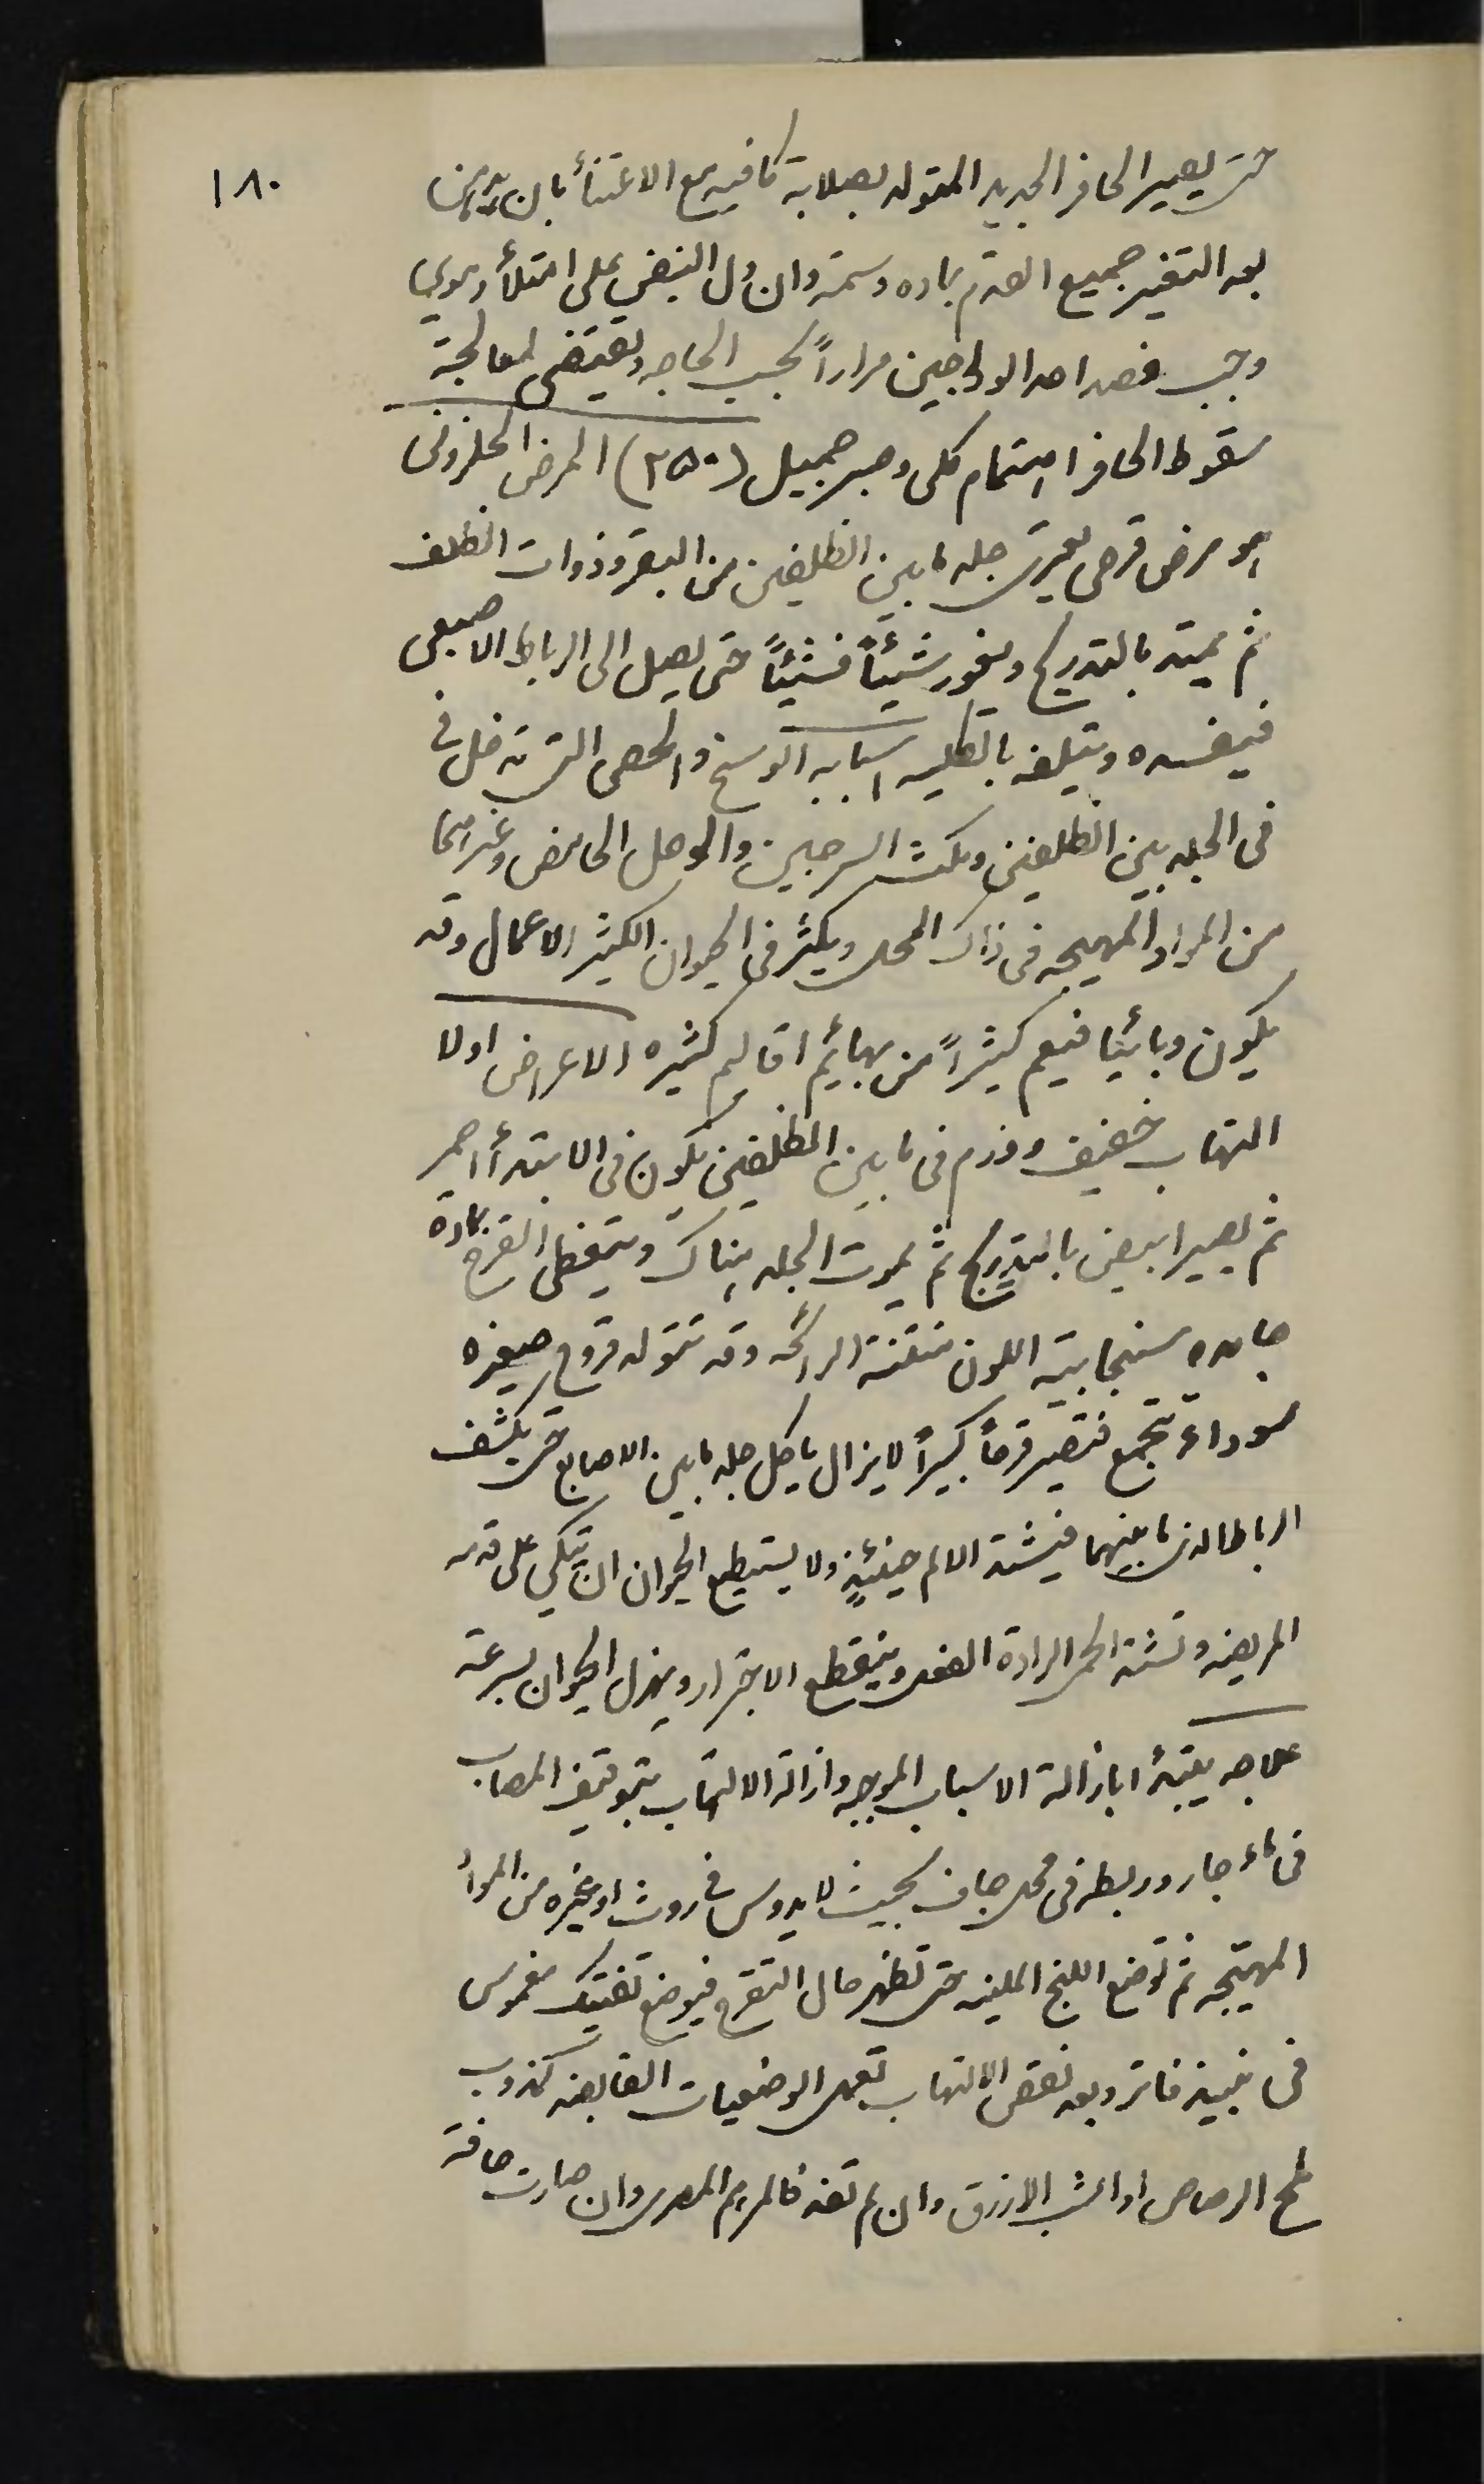 ١٨٠
حتى يصير الحافر الجديد المتولد بصلابة كافيه مع الاعتنأ بان يدهن
بعد التغير جميع القدم بماده دسمة وان دل النبض على امتلأ دموي
وجب فصد احد الوداجين مراراً بحسب الحاجه ويقتضى لمعالجة
سقوط الحافر اهتمام كلى وصبر جميل (٢٥٠) المرض الحلزونى
هو مرض قرحى يعترى جلد ما بين الظلفين من البقر وذوات الظلف
ثم يمتد بالتدريج ويغور شيئاً فشيئاً حتى يصل الى الرباط الاصبعى
فيفسده ويتلفه بالكليه اسبابه الوسخ والحصى التى تدخل فى
فى الجلد بين الظلفين ومكث السرجين والوحل الحامض وغيرهما
من المواد المهيجه فى ذلك المحل ويكثر فى الحيوان الكثير الاعمال وقد
يكون وبائيا فيعم كثيراً من بهائم اقاليم كثيره الاعراض اولا
التهاب خفيف وورم فى ما بين الظلفين يكون فى الابتدأ احمر
ثم يصير ابيض بالتدريج ثم يموت الجلد هناك ويتغطى القرح بمادة
جامده سنجابية اللون منتنة الرائحه وقد تتولد قروح صغيره
سوداء تجتمع فتصير قرحاً كبيراً لا يزال ياكل جلد ما بين الاصابع حتى يكشف
الرباط الذى ما بينهما فيشتد الالم حينئذٍ ولا يستطيع الحيوان ان يتكي على قدمه
المريضه وتشتد الحمى الرادة الفعل وينقطع الاجترار ويهزل الحيوان بسرعة
علاجه يبتدأ بازالة الاسباب الموجبه وازالة الالتهاب بتوقيف المصاب
فى ماء جار وربطه فى محل جاف بحيث لا يدوس فى روث او غيره من الموأ
المهيجه ثم توضع اللبخ الملينه حتى تظهر حال التقرح فيوضع تفتيك مغموس
فى نبيذ فاتر وبعد نقص الالتهاب تعمل الوضعيات القابضه كذوب
ملح الرصاص او الشب الازرق وان لم تفد فالمرهم المصرى وان صارت حافة